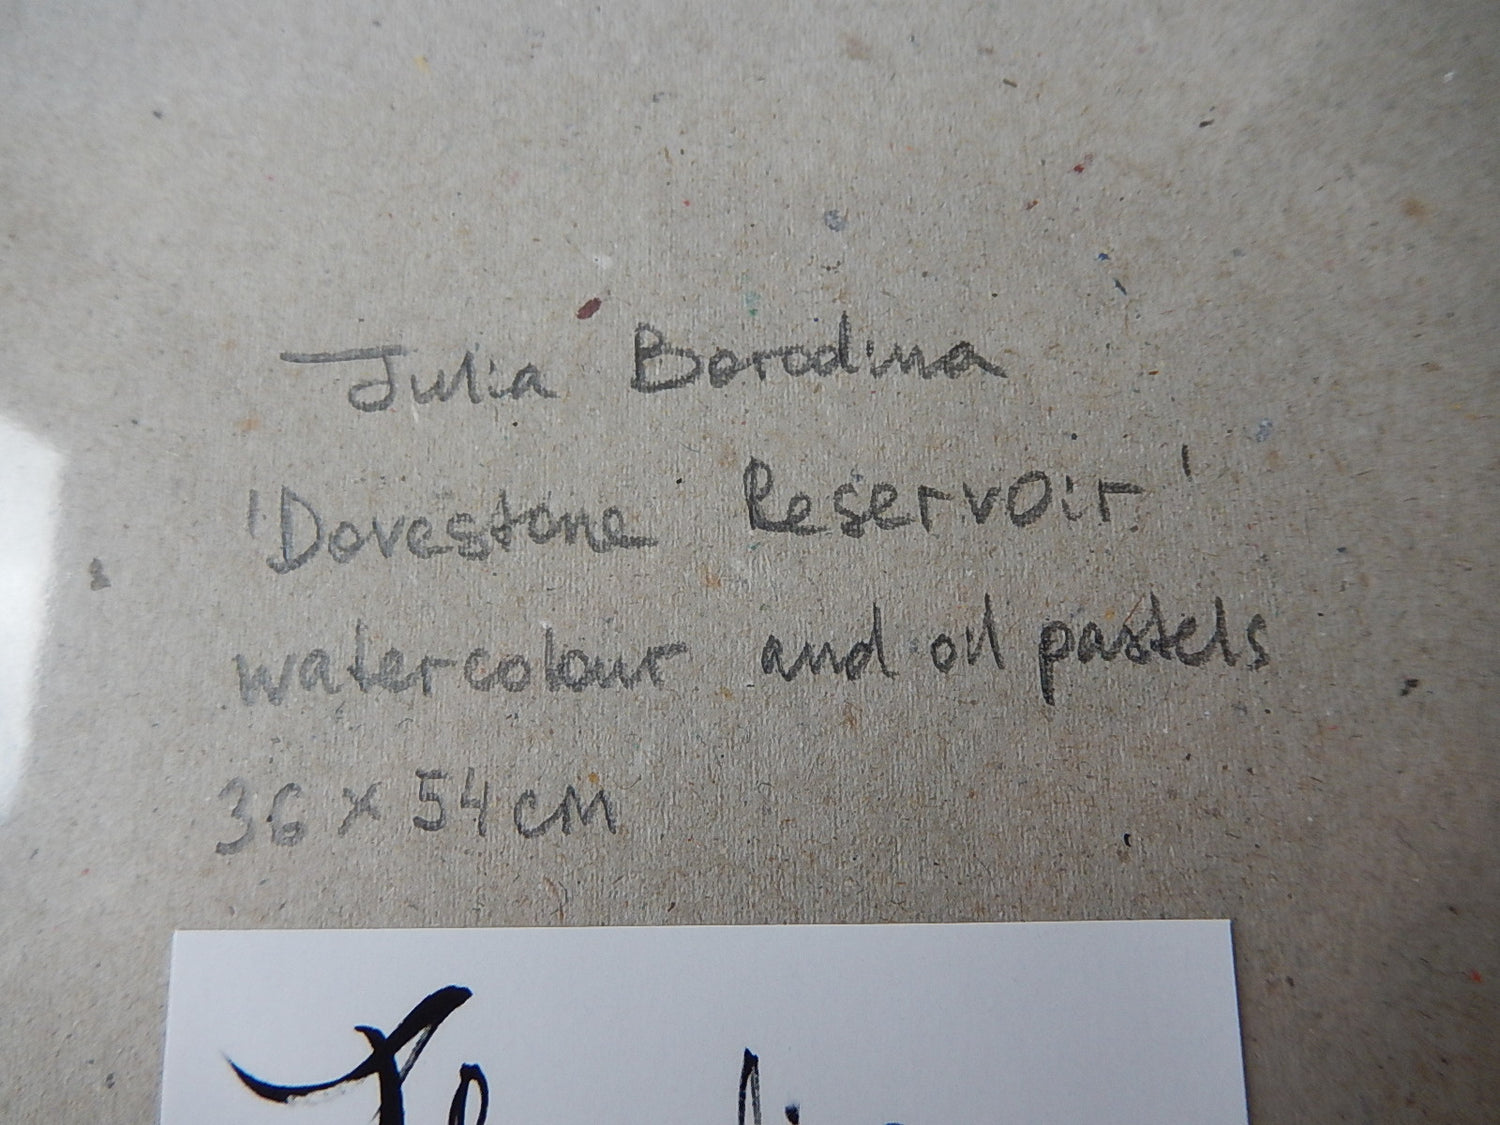 Julia Borodina
'Dovestone Reservoir'
watercolour and oil pastels
36 x 54 cm